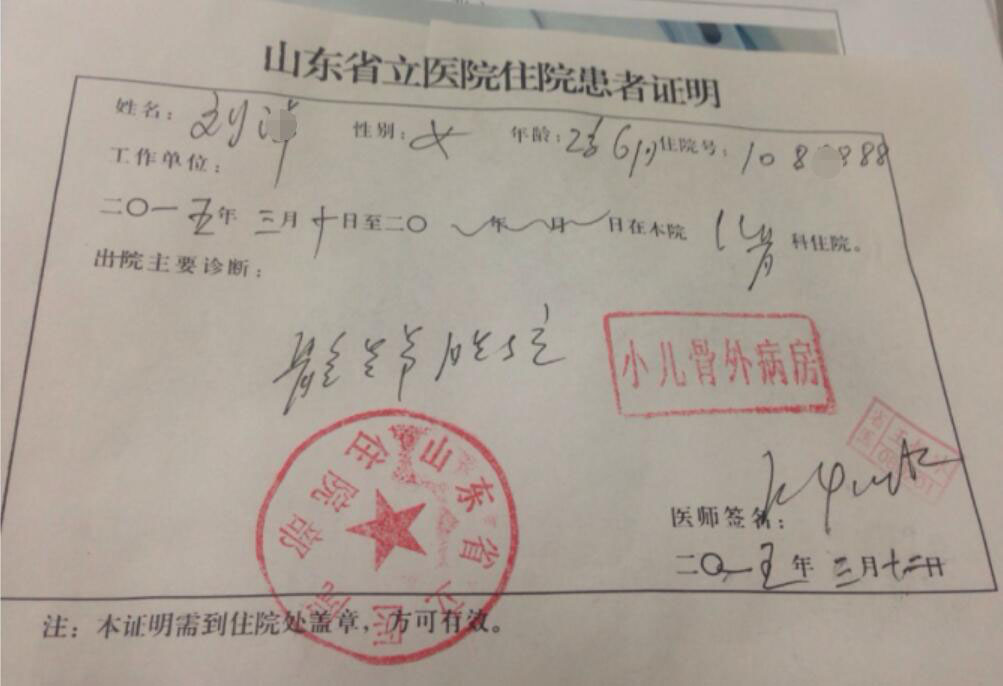 山东省立医院住院患者证明
姓名：刘洋 性别：女 年龄：2岁6月 住院号：10 8 888
工作单位：
二〇一五年 三月十日至二〇 年 月 日在本院 小儿骨 科住院。
出院主要诊断：
髋关节脱位
小儿骨外病房
山东省立医院
住院部
医师签名：
二〇一五年 三月十二日
注：本证明需到住院处盖章，方可有效。